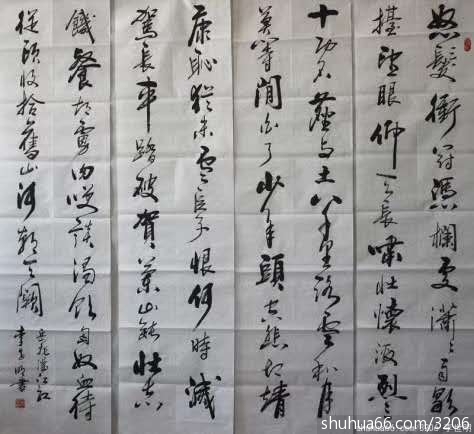 怒髮衝冠憑欄處瀟瀟雨歇
擡望眼仰天長嘯壯懷激烈三
十功名塵與土八千里路雲和月
莫等閒白了少年頭空悲切靖
康恥猶未雪臣子恨何時滅
駕長車踏破賀蘭山缺壯志
饑餐胡虜肉咲談渴飲匈奴血待
從頭收拾舊山河朝天闕
岳飛滿江紅
李明書
shuhua66.com/3206